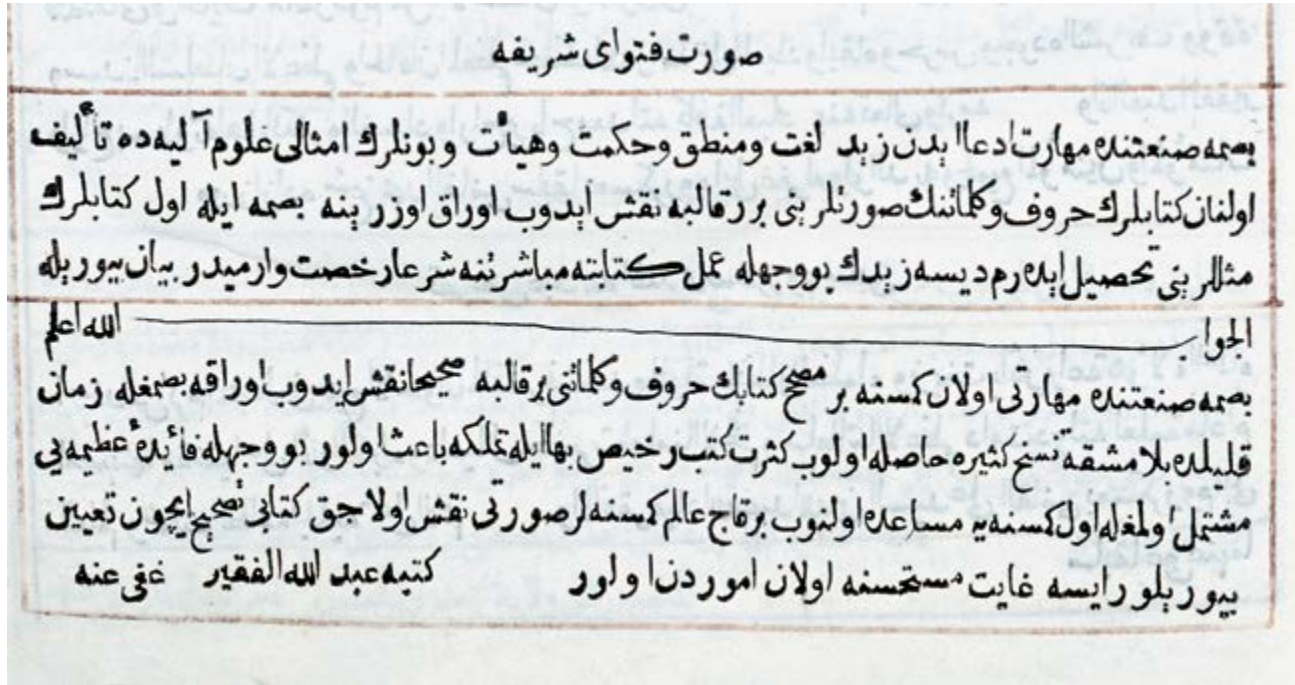 صورت فتوای شریفه
بصمه صنعتنده مهارت ادعا ایدن زید لغت ومنطق وحکمت وهیأت وبونلرك امثالی علوم آلیه ده تألیف
اولنان کتابلرك حروف وکلماتنك صورتلرینی برر قالبه نقش ایدوب اوراق اوزرینه بصمه ایله اول کتابلرك
مثللرینی تحصیل ایده رم دیسه زیدك بووجهله عمل کتابته مباشرتنه شرعا رخصت وارمیدر بیان بیوریله
الجواب الله اعلم
بصمه صنعتنده مهارتی اولان کمسنه بر مصحح کتابك حروف وکلماتنی بر قالبه صحیحا نقش ایدوب اوراقه بصمغله زمان
قلیلده بلا مشقه نسخ کثیره حاصله اولوب کثرت کتب رخیص بها ایله تملکه باعث اولور بووجهله فائیدهٔ عظیمه یی
مشتمل اولمغله اول کمسنه یه مساعده اولنوب برقاج عالم کمسنه لر صورتی نقش اولاجق کتابی تصحیح ایچون تعیین
بیوریلور ایسه غایت مستحسنه اولان اموردن اولور کتبه عبد الله الفقیر عفی عنه